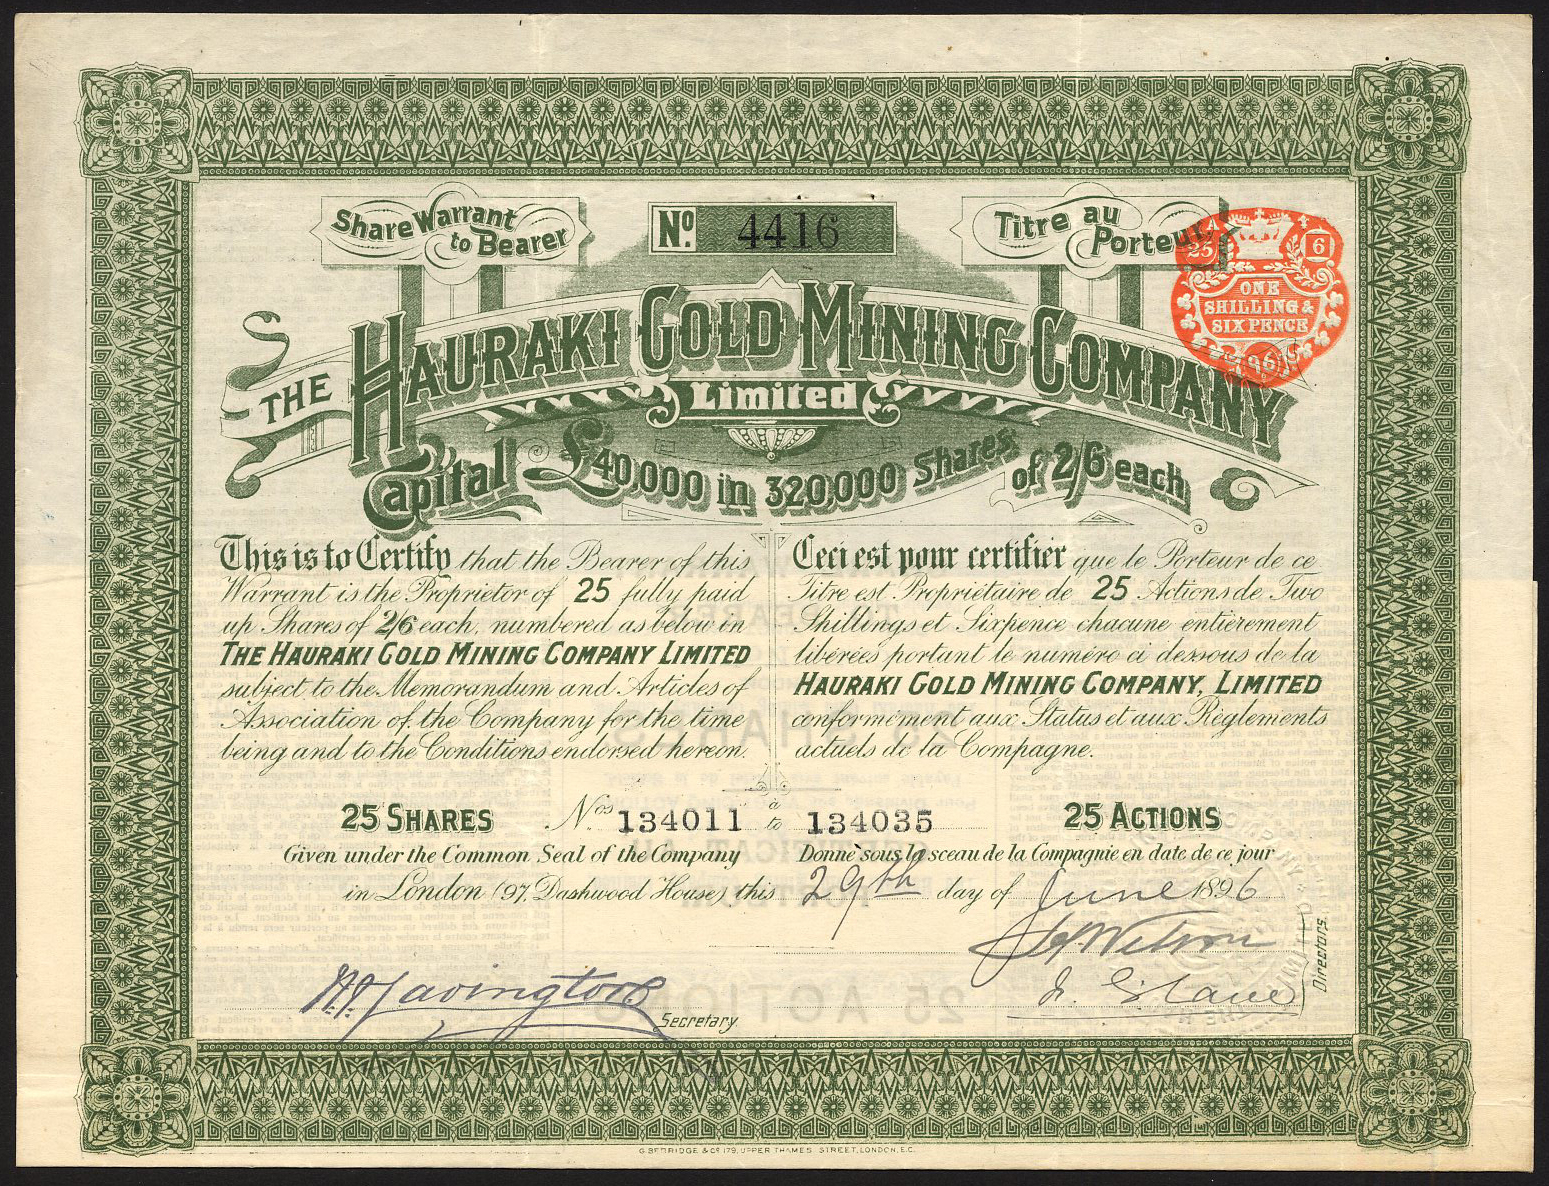 Share Warrant
to Bearer
No. 4416
Titre au
Porteur.
A
25
6
ONE
SHILLING &
SIX PENCE
96
THE HAURAKI GOLD MINING COMPANY
Limited
Capital £40,000 in 320,000 Shares of 2/6 each
This is to Certify that the Bearer of this
Warrant is the Proprietor of 25 fully paid
up Shares of 2/6 each, numbered as below in
THE HAURAKI GOLD MINING COMPANY LIMITED
subject to the Memorandum and Articles of
Association of the Company for the time
being and to the Conditions endorsed hereon.
Ceci est pour certifier que le Porteur de ce
Titre est Propriétaire de 25 Actions de Two
Shillings et Sixpence chacune entièrement
libérées portant le numéro ci dessous de la
HAURAKI GOLD MINING COMPANY, LIMITED
conformément aux Status et aux Règlements
actuels de la Compagne.
25 SHARES Nos 134011 à to 134035 25 ACTIONS
Given under the Common Seal of the Company Donné sous la sceau de la Compagnie en date de ce jour
in London (97, Dashwood House) this 29th day of June 1896
Directors.
Secretary.
G. BERRIDGE & Co 179, UPPER THAMES STREET, LONDON, E.C.